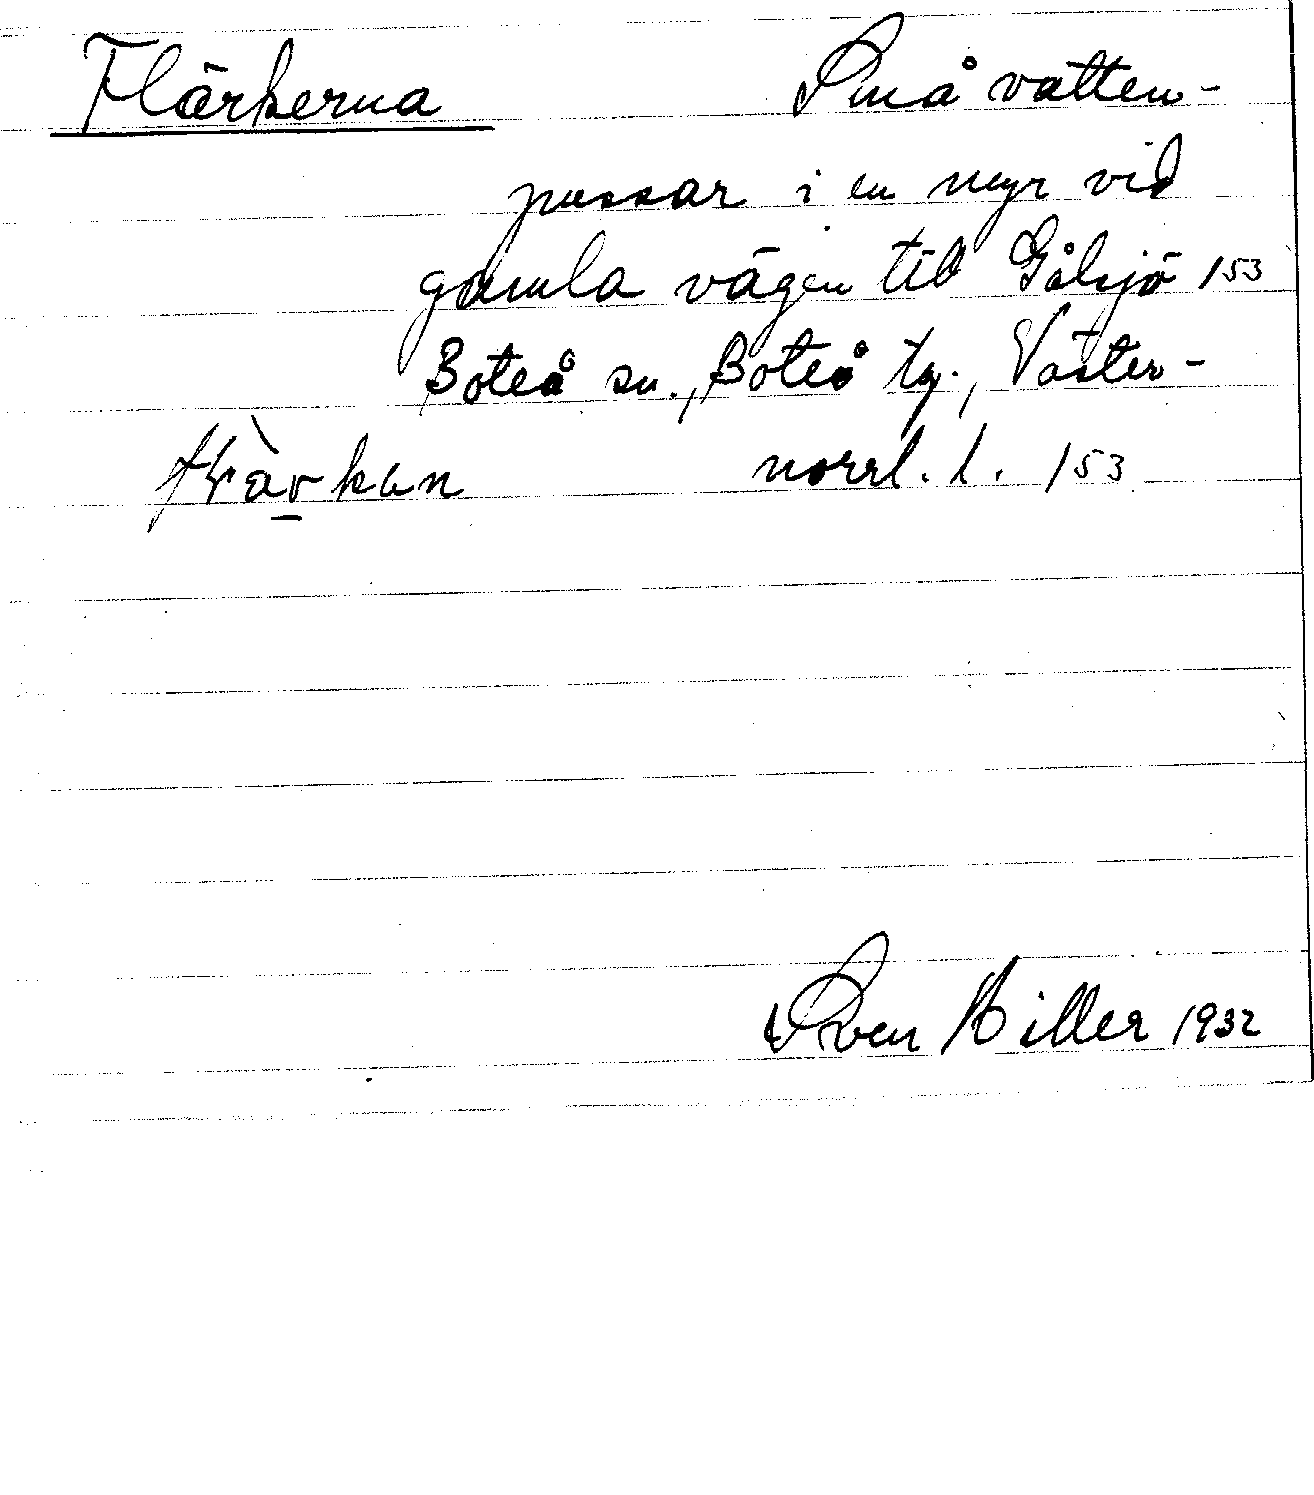 Flärkerna Små vatten-
pussar i en myr vid
gamla vägen till Gålsjö 153
Boteå sn., Boteå tg., Väster-
norrl. l. 153
Sven Hiller 1932